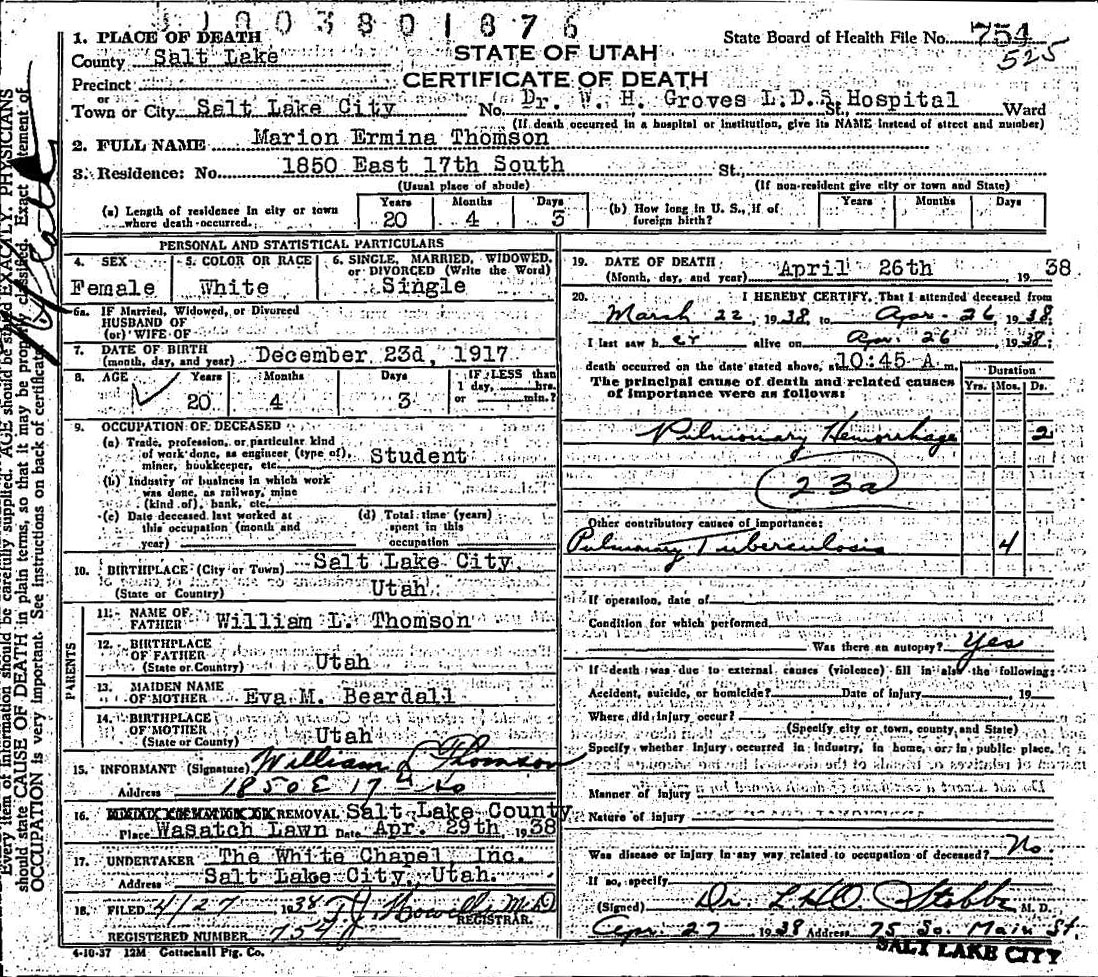 3803801876
1. PLACE OF DEATH
County Salt Lake
Precinct
or
Town or City Salt Lake City
STATE OF UTAH
CERTIFICATE OF DEATH
State Board of Health File No. 754
525
No. Dr. W. H. Groves L.D.S. Hospital St., Ward
(If death occurred in a hospital or institution, give its NAME instead of street and number)
2. FULL NAME Marion Ermina Thomson
3. Residence: No. 1850 East 17th South St.,
(Usual place of abode) (If non-resident give city or town and State)
(a) Length of residence in city or town where death occurred. Years 20 Months 4 Days 3
(b) How long in U. S., if of foreign birth? Years Months Days
PERSONAL AND STATISTICAL PARTICULARS
4. SEX Female
5. COLOR OR RACE White
6. SINGLE, MARRIED, WIDOWED, or DIVORCED (Write the Word) Single
6a. IF Married, Widowed, or Divorced
HUSBAND OF
(or) WIFE OF
7. DATE OF BIRTH (month, day, and year) December 23d, 1917
8. AGE Years 20 Months 4 Days 3 IF LESS than 1 day, hrs. or min.?
9. OCCUPATION OF DECEASED
(a) Trade, profession, or particular kind of work done, as engineer (type of), miner, bookkeeper, etc. Student
(b) Industry or business in which work was done, as railway, mine (kind of), bank, etc.
(c) Date deceased last worked at this occupation (month and year)
(d) Total time (years) spent in this occupation
10. BIRTHPLACE (City or Town) Salt Lake City,
(State or Country) Utah
PARENTS
11. NAME OF FATHER William L. Thomson
12. BIRTHPLACE OF FATHER (State or Country) Utah
13. MAIDEN NAME OF MOTHER Eva M. Beardall
14. BIRTHPLACE OF MOTHER (State or Country) Utah
15. INFORMANT (Signature) William L Thomson
Address 1850 E 17th So
16. REMOVAL Salt Lake County
Place Wasatch Lawn Date Apr. 29th, 1938
17. UNDERTAKER The White Chapel, Inc.
Address Salt Lake City, Utah.
18. FILED 4/27 1938 T. J. Howells M.D.
REGISTRAR.
REGISTERED NUMBER 754
4-10-37 12M Gottschall Ptg. Co.
19. DATE OF DEATH: (Month, day, and year) April 26th 1938
20. I HEREBY CERTIFY, That I attended deceased from
March 22, 1938, to Apr. 26, 1938,
I last saw her alive on Apr. 26 1938;
death occurred on the date stated above, at 10:45 A. m.
The principal cause of death and related causes of importance were as follows:
Duration
Yrs. Mos. Ds.
Pulmonary Hemorrhage 2
23a
Other contributory causes of importance:
Pulmonary Tuberculosis 4
If operation, date of
Condition for which performed
Was there an autopsy? Yes
If death was due to external causes (violence) fill in also the following:
Accident, suicide, or homicide? Date of injury 19
Where did injury occur?
(Specify city or town, county, and State)
Specify whether injury occurred in industry, in home, or in public place,
Manner of injury
Nature of injury
Was disease or injury in any way related to occupation of deceased? No.
If so, specify
(Signed) Dr. Stobbe M. D.
Apr. 27 1938 Address 75 So. Main St.
SALT LAKE CITY
Every item of information should be carefully supplied. AGE should be stated EXACTLY. PHYSICIANS
should state CAUSE OF DEATH in plain terms, so that it may be properly classified. Exact statement of
OCCUPATION is very important. See instructions on back of certificate.